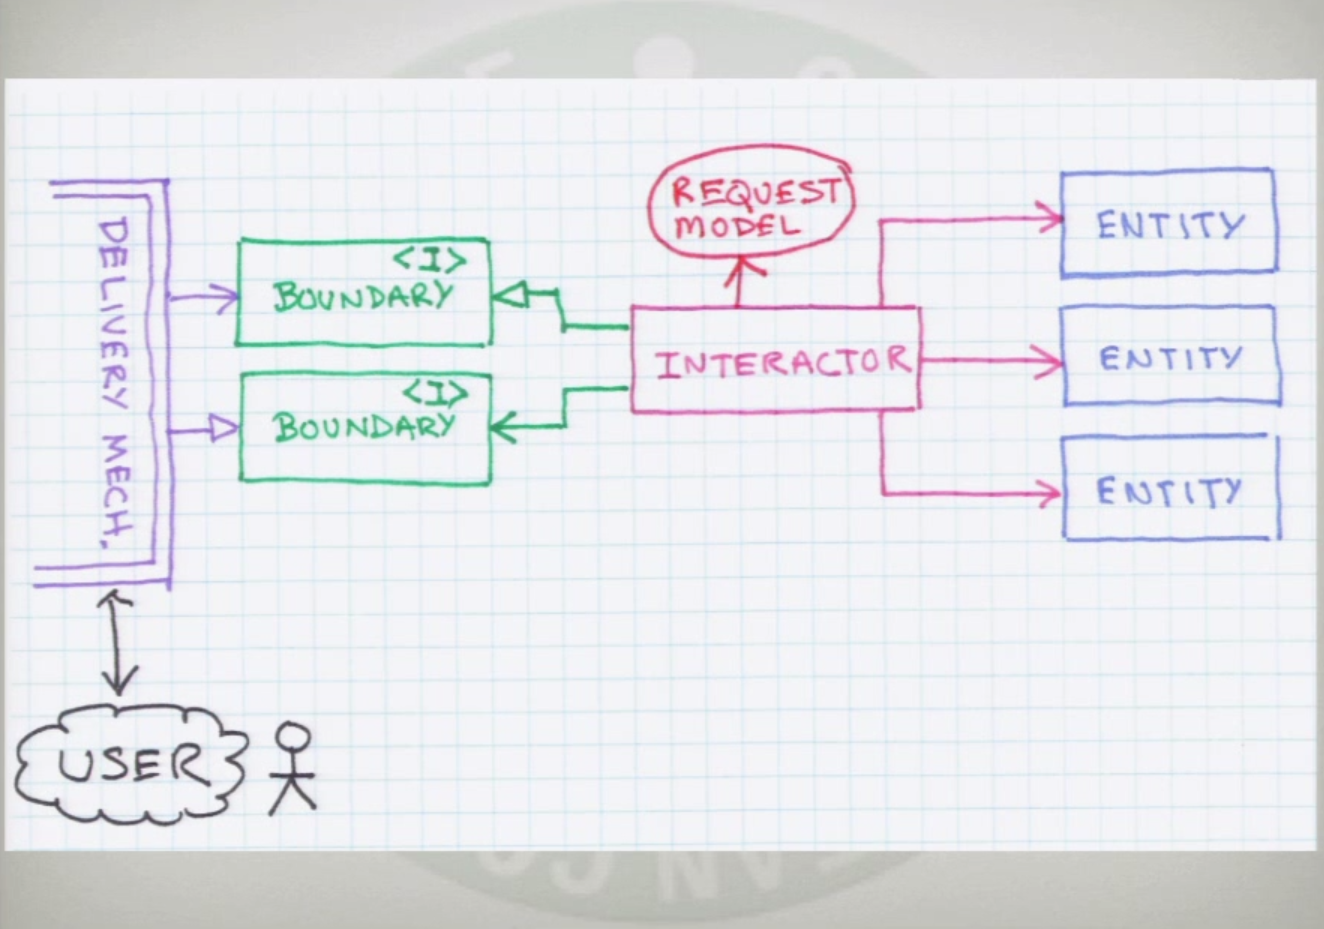 DELIVERY MECH.
<I>
BOUNDARY
<I>
BOUNDARY
REQUEST
MODEL
INTERACTOR
ENTITY
ENTITY
ENTITY
USER